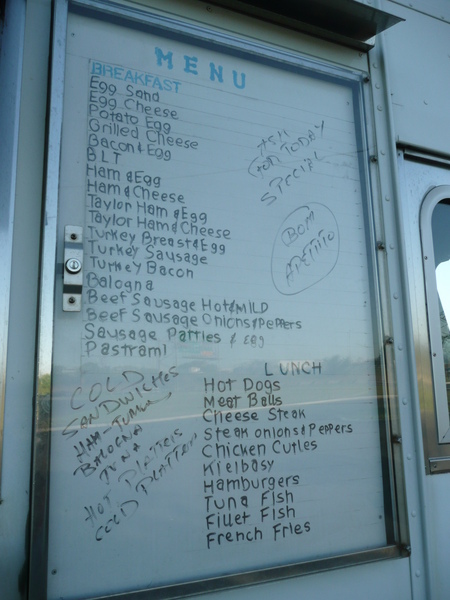 MENU
BREAKFAST
Egg Sand
Egg Cheese
Potato Egg
Grilled Cheese
Bacon & Egg
BLT
Ham & Egg
Ham & Cheese
Taylor Ham & Egg
Taylor Ham & Cheese
Turkey Breast & Egg
Turkey Sausage
Turkey Bacon
Balogna
Beef Sausage Hot & MILD
Beef Sausage Onions & Peppers
Sausage Patties & Egg
Pastrami
TODAY
SPECIAL
BOM
APETITO
LUNCH
Hot Dogs
Meat Balls
Cheese Steak
Steak Onions & Peppers
Chicken Cutles
Kielbasy
Hamburgers
Tuna Fish
Fillet Fish
French Fries
COLD
SANDWICHES
HAM-
BALOGNA
TUNA
HOT PLATTERS
COLD PLATTERS